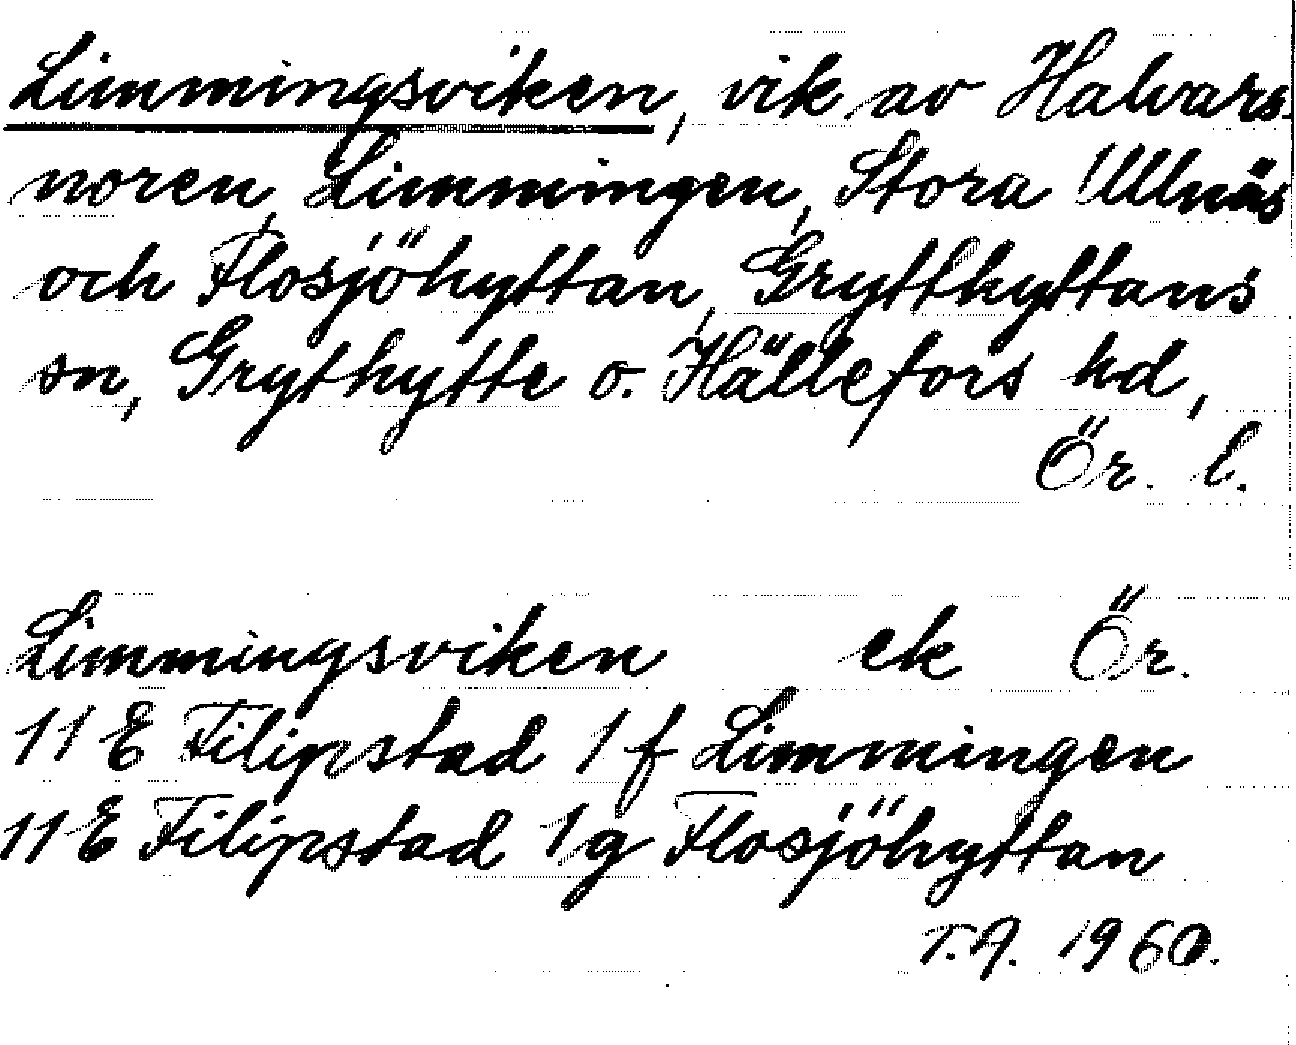 Limmingsviken, vik av Halvars-
noren, Limmingen, Stora Ullnäs
och Flosjöhyttan, Grytthyttans
sn, Grythytte o. Hällefors hd,
Ör. l.
Limmingsviken ek Ör.
11 E Filipstad 1 f Limmingen
11 E Filipstad 1 g Flosjöhyttan
T.A. 1960.